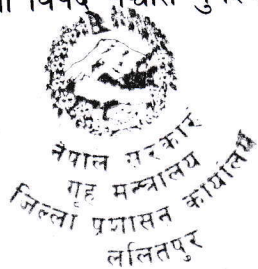 विपद्
नेपाल सरकार
गृह मन्त्रालय
जिल्ला प्रशासन कार्यालय
ललितपुर